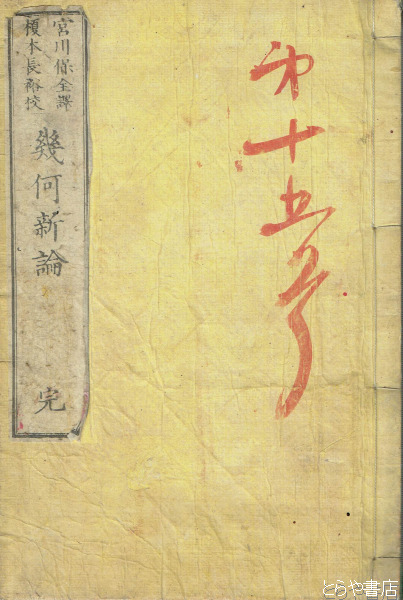 宮川保全譯
榎本長裕校
幾何新論 完
第十五号
とらや書店